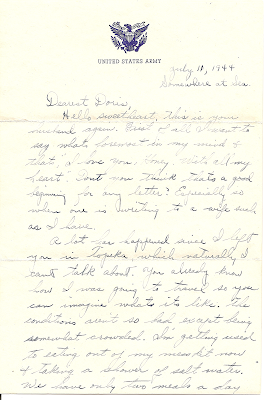 UNITED STATES ARMY
July 11, 1944
Somewhere at Sea.
Dearest Doris,
Hello sweetheart, this is your
husband again. First of all I want to
say whats foremost in my mind &
that, I love you, Honey, with all my
heart. Dont you think thats a good
beginning for any letter? Especially so
when one is writing to a wife such
as I have.
A lot has happened since I left
you in Topeka which naturally I
cant talk about. You already know
how I was going to travel so you
can imagine whats its like. The
conditions arent so bad except being
somewhat crowded. Im getting used
to eating out of my messkit now
& taking a shower of salt water.
We have only two meals a day